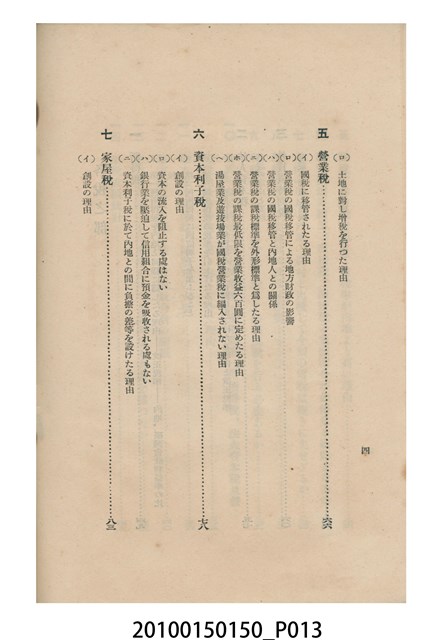 (ロ) 土地に對し增税を行つた理由
五 營業税……六六
(イ) 國税に移管されたる理由
(ロ) 營業税の國税移管による地方財政の影響
(ハ) 營業税の國税移管と内地人との關係
(ニ) 營業税の課税標準を外形標準と爲したる理由
(ホ) 營業税の課税最低限を營業收益六百圓に定めたる理由
(ヘ) 湯屋業及遊技場業が國税營業税に編入されない理由
六 資本利子税……七八
(イ) 創設の理由
(ロ) 資本の流入を阻止する虞はない
(ハ) 銀行業を壓迫して信用組合に預金を吸收される虞もない
(ニ) 資本利子税に於て内地との間に負擔の差等を設けたる理由
七 家屋税……八三
(イ) 創設の理由
四
20100150150_P013